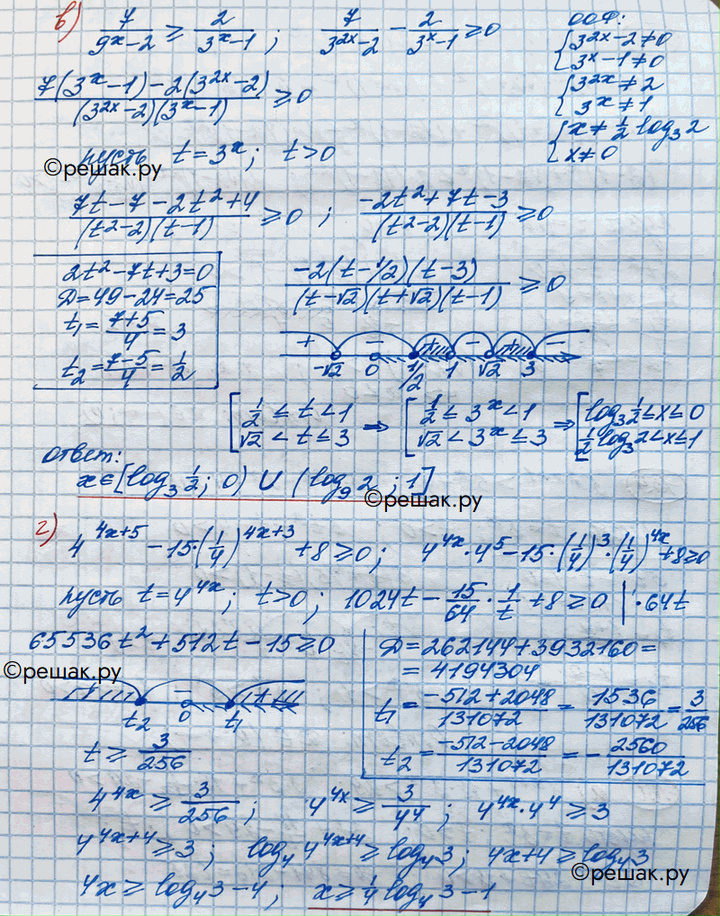 в) 7/(9^x-2) ≥ 2/(3^x-1) ; 7/(3^(2x)-2) - 2/(3^x-1) ≥ 0
ООФ:
{3^(2x)-2≠0
{3^x-1≠0
{3^(2x)≠2
{3^x≠1
{x≠½log₃2
{x≠0
(7(3^x-1)-2(3^(2x)-2))/((3^(2x)-2)(3^x-1)) ≥ 0
пусть t=3^x; t>0
©решак.ру
(7t-7-2t²+4)/((t²-2)(t-1)) ≥ 0 ; (-2t²+7t-3)/((t²-2)(t-1)) ≥ 0
2t²-7t+3=0
Д=49-24=25
t₁=(7+5)/4=3
t₂=(7-5)/4=1/2
(-2(t-1/2)(t-3))/((t-√2)(t+√2)(t-1)) ≥ 0
+ - + - + -
-√2 0 1/2 1 √2 3
[1/2≤t<1 ⇒ [1/2≤3^x<1 ⇒ [log₃½≤x≤0
[√2<t≤3 [√2<3^x≤3 [½log₃2<x≤1
ответ:
x∈[log₃½; 0) ∪ (log₉2 ; 1]
©решак.ру
г) 4^(4x+5) - 15·(1/4)^(4x+3) + 8≥0; 4^(4x)·4^5-15·(1/4)^3·(1/4)^(4x)+8≥0
пусть t=4^(4x); t>0; 1024t - 15/64 · 1/t + 8≥0 |·64t
65536t²+512t-15≥0
©решак.ру
Д=262144+3932160=
=4194304
t₁=(-512+2048)/131072=1536/131072=3/256
t₂=(-512-2048)/131072=-2560/131072
+ - +
t₂ 0 t₁
t≥3/256
4^(4x)≥3/256; 4^(4x)≥3/4^4; 4^(4x)·4^4≥3
4^(4x+4)≥3; log₄4^(4x+4)≥log₄3; 4x+4≥log₄3
©решак.ру
4x≥log₄3-4; x≥¼log₄3-1